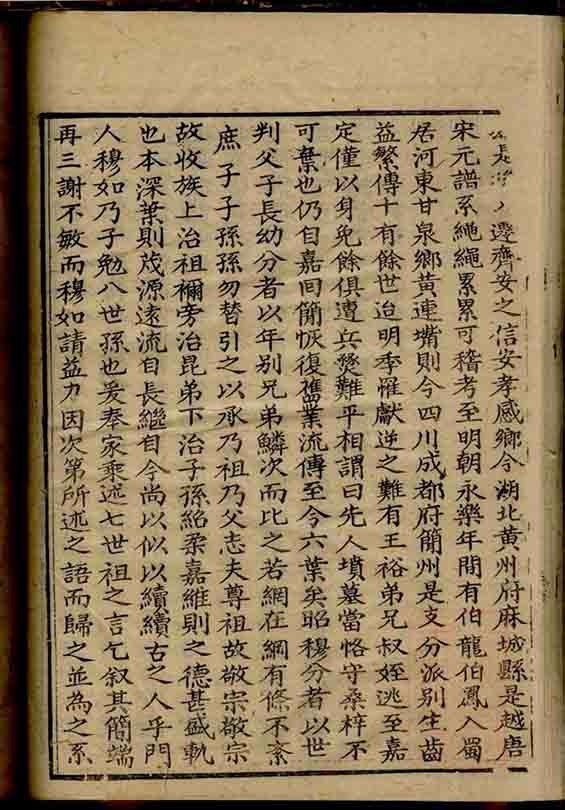 遷齊安之信安孝感鄉今湖北黃州府麻城縣是越唐
宋元譜系繩繩累累可稽考至明朝永樂年間有伯龍伯鳳入蜀
居河東甘泉鄉黃連嘴則今四川成都府簡州是支分派別生齒
益繁傳十有餘世迨明季罹獻逆之難有王裕弟兄叔姪逃至嘉
定僅以身免餘俱遭兵燹難平相謂曰先人墳墓當恪守桑梓不
可棄也仍自嘉回簡恢復舊業流傳至今六葉矣昭穆分者以世
判父子長幼分者以年別兄弟鱗次而比之若網在綱有條不紊
庶子子孫孫勿替引之以承乃祖乃父志夫尊祖故敬宗敬宗
故收族上治祖禰旁治昆弟下治子孫紹柔嘉維則之德甚盛軌
也本深葉則茂源遠流自長繼自今尚以似以續續古之人乎門
人穆如乃子勉八世孫也爰奉家乘述七世祖之言乞叙其簡端
再三謝不敏而穆如請益力因次第所述之語而歸之並為之系